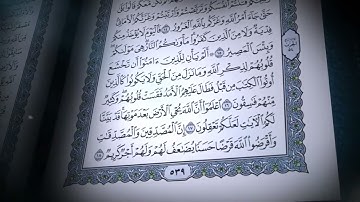 وَتَرَبَّصْتُمْ وَٱرْتَبْتُمْ وَغَرَّتْكُمُ ٱلْأَمَانِيُّ
حَتَّىٰ جَآءَ أَمْرُ ٱللَّهِ وَغَرَّكُم بِٱللَّهِ ٱلْغَرُورُ ١٤ فَٱلْيَوْمَ لَا يُؤْخَذُ مِنكُمْ
فِدْيَةٌ وَلَا مِنَ ٱلَّذِينَ كَفَرُوا۟ مَأْوَىٰكُمُ ٱلنَّارُ هِيَ مَوْلَىٰكُمْ
وَبِئْسَ ٱلْمَصِيرُ ١٥ أَلَمْ يَأْنِ لِلَّذِينَ ءَامَنُوٓا۟ أَن تَخْشَعَ
قُلُوبُهُمْ لِذِكْرِ ٱللَّهِ وَمَا نَزَلَ مِنَ ٱلْحَقِّ وَلَا يَكُونُوا۟ كَٱلَّذِينَ
أُوتُوا۟ ٱلْكِتَٰبَ مِن قَبْلُ فَطَالَ عَلَيْهِمُ ٱلْأَمَدُ فَقَسَتْ قُلُوبُهُمْ وَكَثِيرٌ
مِّنْهُمْ فَٰسِقُونَ ١٦ ٱعْلَمُوٓا۟ أَنَّ ٱللَّهَ يُحْيِ ٱلْأَرْضَ بَعْدَ مَوْتِهَا قَدْ بَيَّنَّا
لَكُمُ ٱلْءَايَٰتِ لَعَلَّكُمْ تَعْقِلُونَ ١٧ إِنَّ ٱلْمُصَّدِّقِينَ وَٱلْمُصَّدِّقَٰتِ
وَأَقْرَضُوا۟ ٱللَّهَ قَرْضًا حَسَنًا يُضَٰعَفُ لَهُمْ وَلَهُمْ أَجْرٌ كَرِيمٌ ١٨
٥٣٩